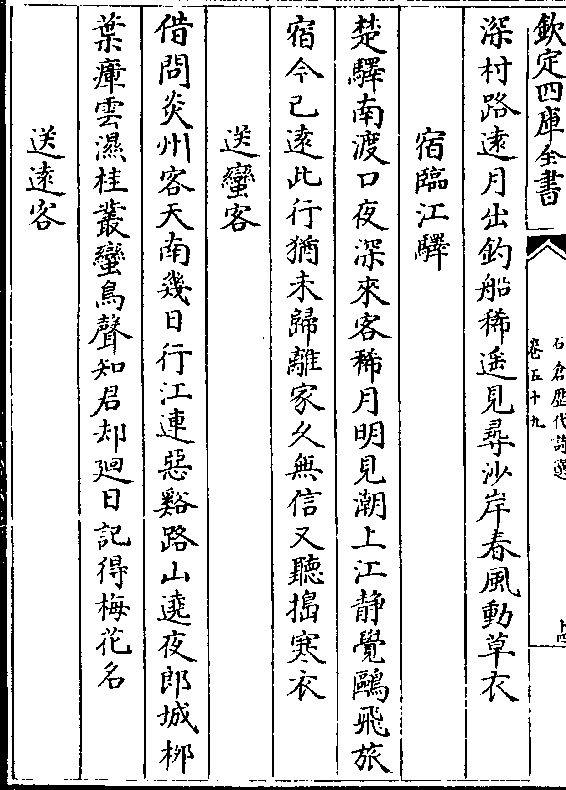 欽定四庫全書
石倉歷代詩選
卷五十九
深村路遠月出釣船稀遥見尋沙岸春風動草衣
宿臨江驛
楚驛南渡口夜深來客稀月明見潮上江静覺鷗飛旅
宿今已遠此行猶未歸離家久無信又聽搗寒衣
送蠻客
借問炎州客天南幾日行江連惡谿路山遶夜郎城桞
葉瘴雲濕桂叢蠻鳥聲知君却廻日記得梅花名
送遠客